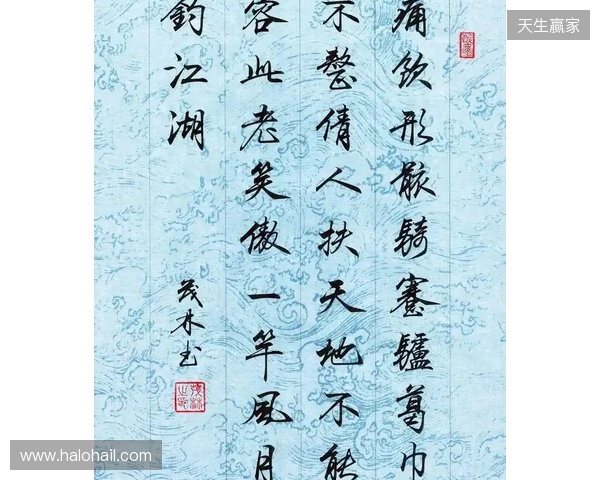 天生赢家
痛飲形骸騎蹇驢葛巾
不整倩人扶天地不能
容此老笑傲一竿風月
釣江湖
茂林书
www.halohail.com